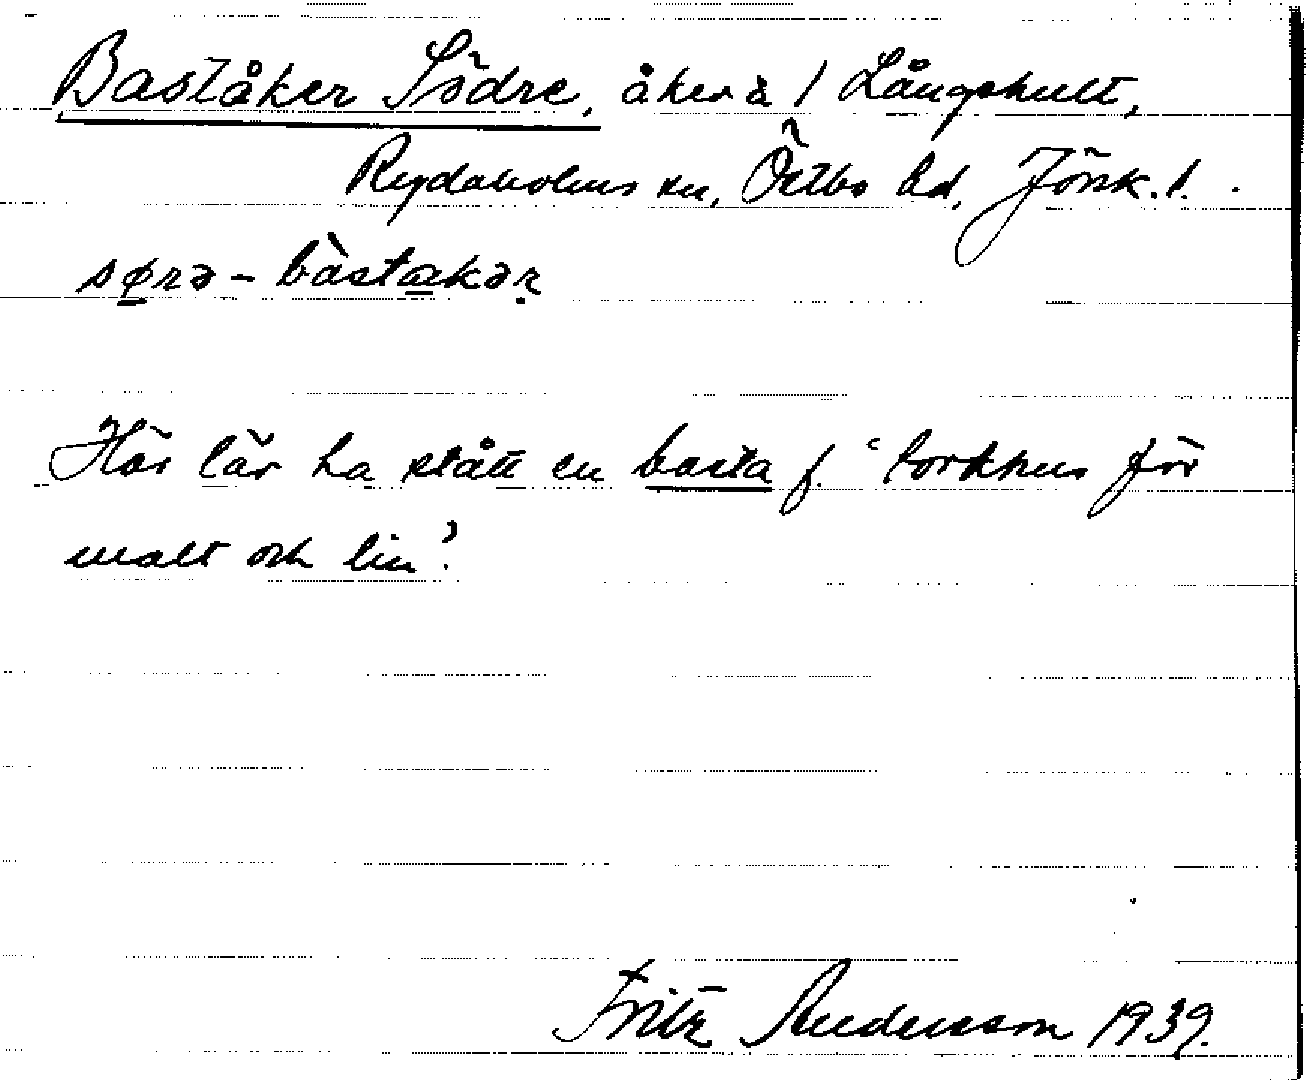 Baståker Södre, åker å 1 Långhult,
Rydaholms sn, Östbo hd, Jönk. l.
sørə - bàstakər
Här lär ha stått en basta f. 'torkhus för
malt och lin'.
Fritz Andersson 1939.